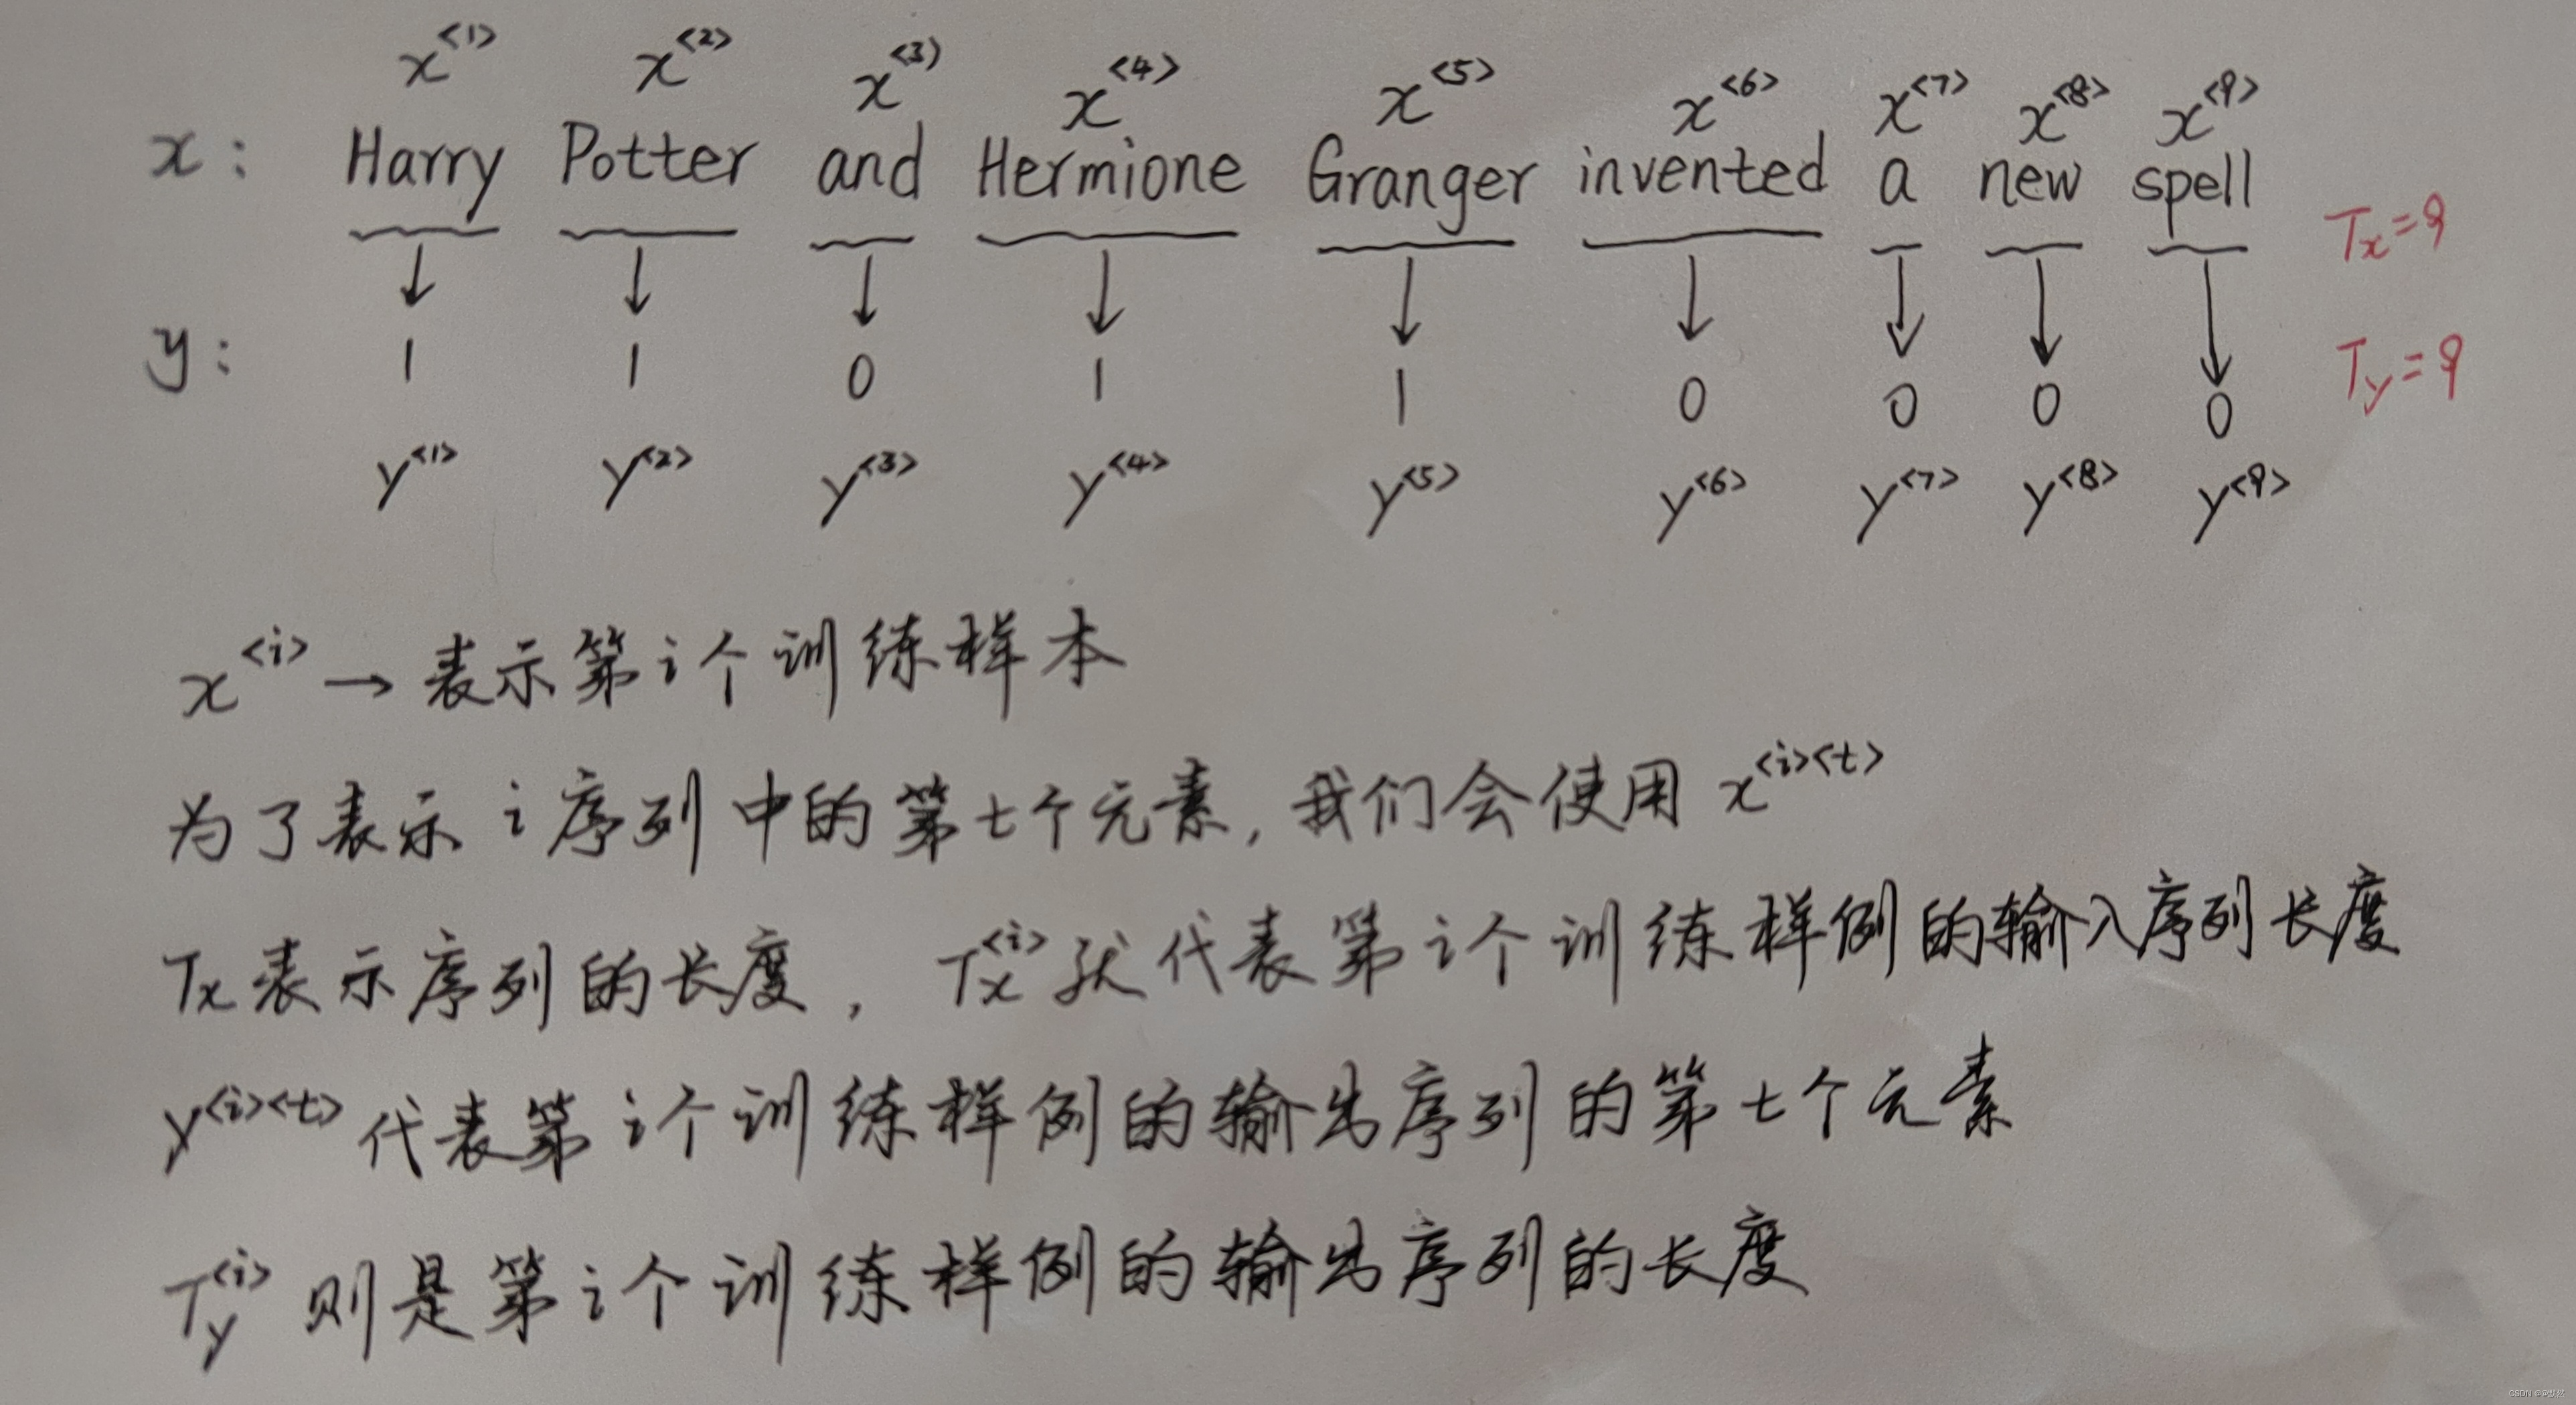 x<1> x<2> x<3) x<4> x<5> x<6> x<7> x<8> x<9>
x: Harry Potter and Hermione Granger invented a new spell Tx=9
y: 1 1 0 1 1 0 0 0 0 Ty=9
y<1> y<2> y<3> y<4> y<5> y<6> y<7> y<8> y<9>
x<i> → 表示第i个训练样本
为了表示i序列中的第t个元素, 我们会使用 x<i><t>
Tx表示序列的长度, Tx<i>就代表第i个训练样例的输入序列长度
y<i><t>代表第i个训练样例的输出序列的第t个元素
Ty<i>则是第i个训练样例的输出序列的长度
CSDN @@默然